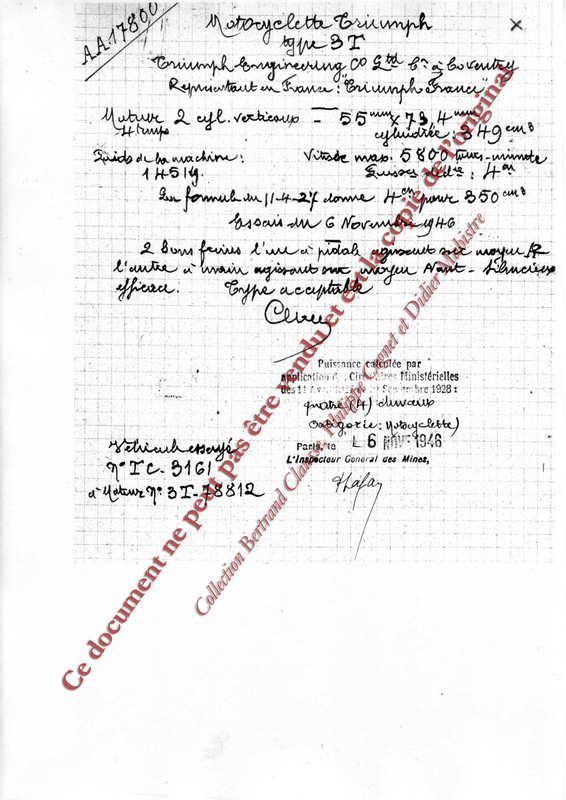 AA17800
Motocyclette Triumph
type 3T
Triumph Engineering Co Ltd à Coventry
Représentant en France: "Triumph France"
Moteur 2 cyl. verticaux — 55mm x 73,4mm
4 temps cylindrée: 349 cm3
Poids de la machine: Vitesse max. 5800 tours-minute
145 kg. 4 cv
La formule du 11-4-27 donne 4 cv pour 350 cm3
Essais du 6 Novembre 1946
2 bons freins l'un à pédale agissant sur moyeu AR
l'autre à main agissant sur moyeu Avant - Silencieux
efficace. Type acceptable
Puissance calculée par
application des Circulaires Ministérielles
des 11 Avril et Septembre 1928:
quatre (4) chevaux
Catégorie: Motocyclette)
Paris, le L 6 NOV 1946
L'Inspecteur Général des Mines,
Véhicule essayé
N° TC-3161
à Moteur N° 3T-78812
Ce document ne peut pas être vendu et est la copie de l'original
Collection Bertrand Clausse, Philippe Cognet et Didier Mahistre